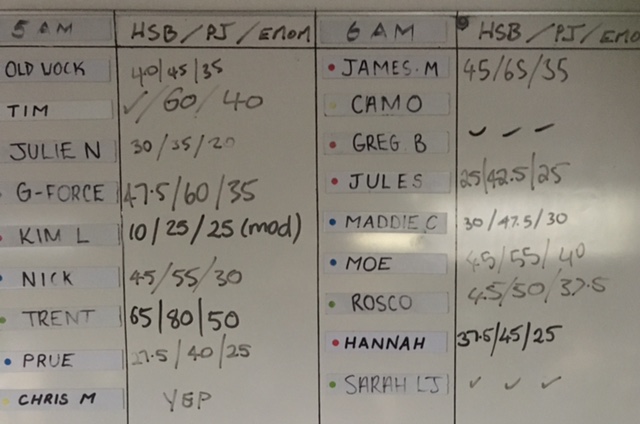 5 AM HSB / PJ / EMOM
OLD VOCK 40/45/35
TIM ✓/60/40
JULIE N 30/35/20
G-FORCE 47.5/60/35
KIM L 10/25/25 (mod)
NICK 45/55/30
TRENT 65/80/50
PRUE /40/25
CHRIS M YEP
6 AM HSB / PJ / EMO
JAMES.M 45/65/35
CAMO
GREG B ✓ ✓ ✓
JULES 25/42.5/25
MADDIE C 30/47.5/30
MOE 45/55/40
ROSCO /50/37.5
HANNAH 37.5/45/25
SARAH LJ ✓ ✓ ✓